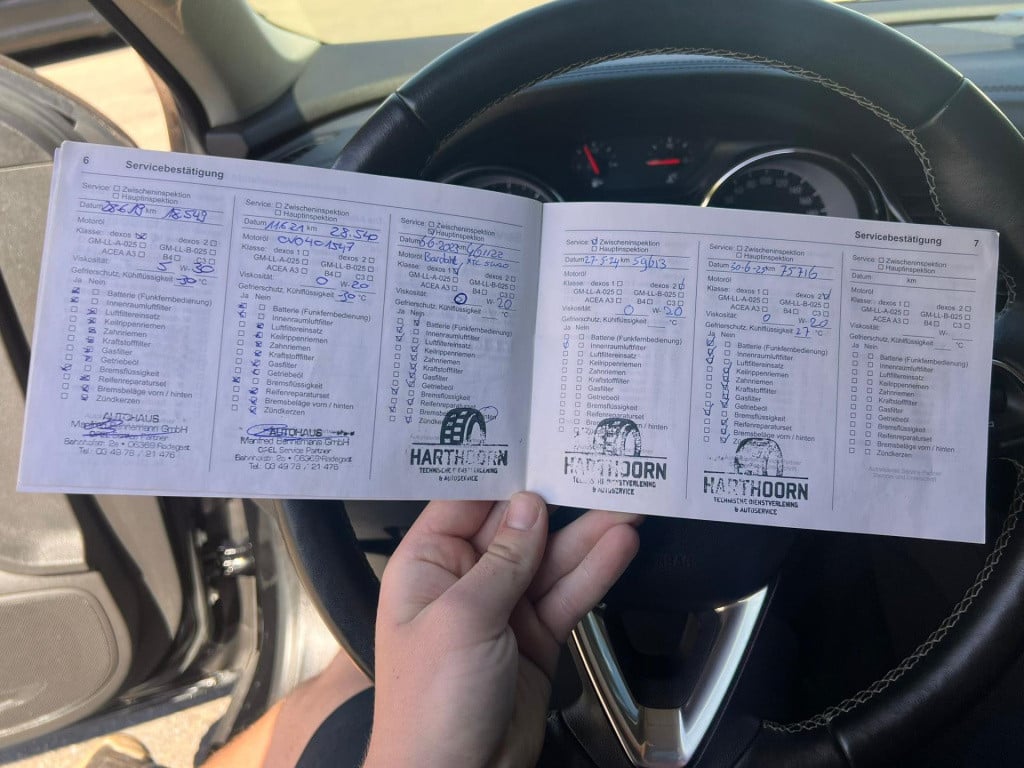 6 Servicebestätigung
Service: ☐ Zwischeninspektion
☐ Hauptinspektion
Datum 28.6.19 km 18.549
Motoröl
Klasse: dexos 1 dexos 2 ☐
GM-LL-A-025 ☐ GM-LL-B-025 ☐
ACEA A3 ☐ B4 ☐ C3 ☐
Viskosität: 5 W- 30
Gefrierschutz, Kühlflüssigkeit -30 °C
Ja Nein
Batterie (Funkfernbedienung)
Innenraumluftfilter
Luftfiltereinsatz
Keilrippenriemen
Zahnriemen
Kraftstofffilter
Gasfilter
Getriebeöl
Bremsflüssigkeit
Reifenreparaturset
Bremsbeläge vorn / hinten
Zündkerzen
AUTOHAUS
Manfred Bennemann GmbH
OPEL Service Partner
Bahnhofstr. 2a • 06369 Radegast
Tel.: 03 49 78 / 21 476
Service: ☐ Zwischeninspektion
☐ Hauptinspektion
Datum 11.6.21 km 28.540
Motoröl OV0401547
Klasse: dexos 1 ☐ dexos 2 ☐
GM-LL-A-025 ☐ GM-LL-B-025 ☐
ACEA A3 ☐ B4 ☐ C3 ☐
Viskosität: 0 W- 20
Gefrierschutz, Kühlflüssigkeit -30 °C
Ja Nein
Batterie (Funkfernbedienung)
Innenraumluftfilter
Luftfiltereinsatz
Keilrippenriemen
Zahnriemen
Kraftstofffilter
Gasfilter
Getriebeöl
Bremsflüssigkeit
Reifenreparaturset
Bremsbeläge vorn / hinten
Zündkerzen
AUTOHAUS
Manfred Bennemann GmbH
OPEL Service Partner
Bahnhofstr. 2a • 06369 Radegast
Tel.: 03 49 78 / 21 476
Service: ☐ Zwischeninspektion
Hauptinspektion
Datum km
Motoröl
Klasse: dexos 1 dexos 2 ☐
GM-LL-A-025 ☐ GM-LL-B-025 ☐
ACEA A3 ☐ B4 ☐ C3 ☐
Viskosität: 0 W- 20
Gefrierschutz, Kühlflüssigkeit °C
Ja Nein
Batterie (Funkfernbedienung)
Innenraumluftfilter
Luftfiltereinsatz
Keilrippenriemen
Zahnriemen
Kraftstofffilter
Gasfilter
Getriebeöl
Bremsflüssigkeit
Reifenreparaturset
Bremsbeläge vorn / hinten
Zündkerzen
HARTHOORN
TECHNISCHE DIENSTVERLENING
& AUTOSERVICE
Servicebestätigung 7
Service: Zwischeninspektion
☐ Hauptinspektion
Datum 27-5-24 km 59613
Motoröl
Klasse: dexos 1 ☐ dexos 2
GM-LL-A-025 ☐ GM-LL-B-025 ☐
ACEA A3 ☐ B4 ☐ C3 ☐
Viskosität: 0 W- 20
Gefrierschutz, Kühlflüssigkeit °C
Ja Nein
Batterie (Funkfernbedienung)
Innenraumluftfilter
Luftfiltereinsatz
Keilrippenriemen
Zahnriemen
Kraftstofffilter
Gasfilter
Getriebeöl
Bremsflüssigkeit
Reifenreparaturset
Bremsbeläge vorn / hinten
HARTHOORN
TECHNISCHE DIENSTVERLENING
& AUTOSERVICE
Service: ☐ Zwischeninspektion
☐ Hauptinspektion
Datum 30-6-25 km 75716
Motoröl
Klasse: dexos 1 ☐ dexos 2
GM-LL-A-025 ☐ GM-LL-B-025 ☐
ACEA A3 ☐ B4 ☐ C3 ☐
Viskosität: 0 W- 20
Gefrierschutz, Kühlflüssigkeit 27 °C
Ja Nein
Batterie (Funkfernbedienung)
Innenraumluftfilter
Luftfiltereinsatz
Keilrippenriemen
Zahnriemen
Kraftstofffilter
Gasfilter
Getriebeöl
Bremsflüssigkeit
Reifenreparaturset
Bremsbeläge vorn / hinten
HARTHOORN
TECHNISCHE DIENSTVERLENING
& AUTOSERVICE
Service: ☐ Zwischeninspektion
☐ Hauptinspektion
Datum km
Motoröl
Klasse: dexos 1 ☐ dexos 2 ☐
GM-LL-A-025 ☐ GM-LL-B-025 ☐
ACEA A3 ☐ B4 ☐ C3 ☐
Viskosität: W-
Gefrierschutz, Kühlflüssigkeit: °C
Ja Nein
☐ ☐ Batterie (Funkfernbedienung)
☐ ☐ Innenraumluftfilter
☐ ☐ Luftfiltereinsatz
☐ ☐ Keilrippenriemen
☐ ☐ Zahnriemen
☐ ☐ Kraftstofffilter
☐ ☐ Gasfilter
☐ ☐ Getriebeöl
☐ ☐ Bremsflüssigkeit
☐ ☐ Reifenreparaturset
☐ ☐ Bremsbeläge vorn / hinten
☐ ☐ Zündkerzen